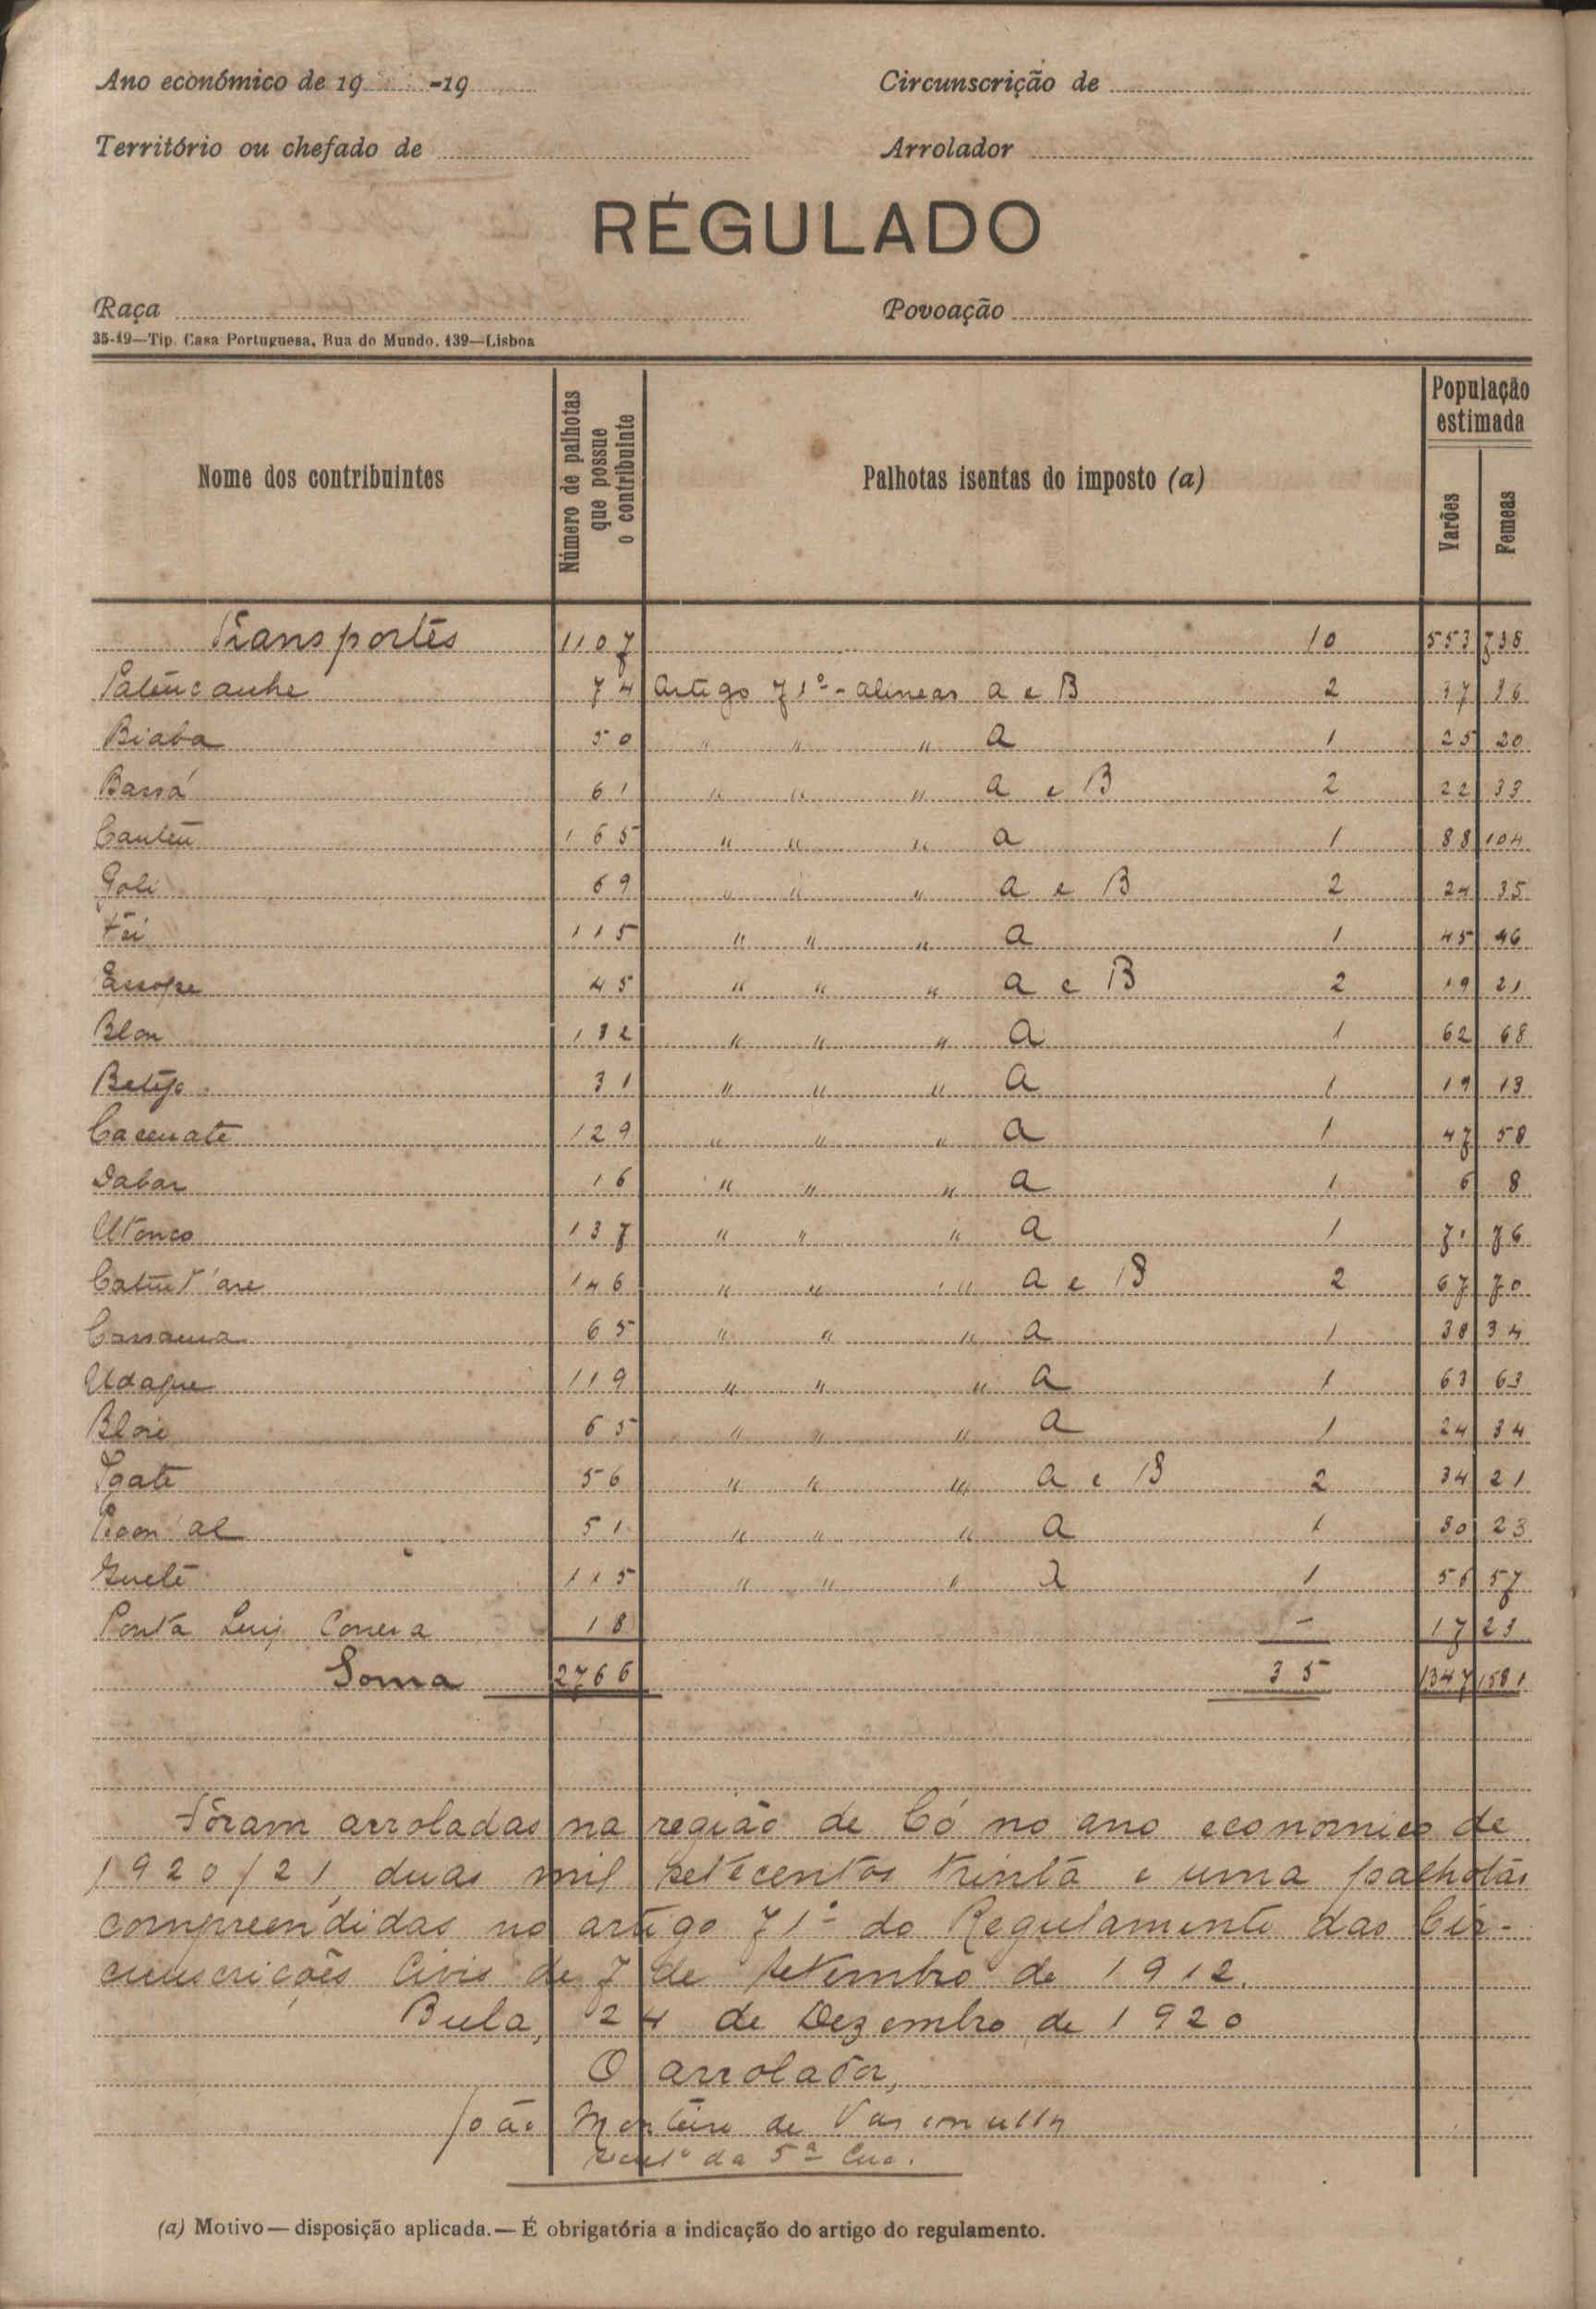 Ano económico de 19 -19 Circunscrição de
Território ou chefado de Arrolador
RÉGULADO
Raça Povoação
35-19—Tip. Casa Portuguesa, Rua do Mundo, 139—Lisboa
Nome dos contribuintes Número de palhotas que possue o contribuinte Palhotas isentas do imposto (a) População estimada Varões Femeas
Transportes 1107 10 553 738
74 Artigo 71º - alineas a e B 2 37 36
Biaba 50 " " " a 1 25 20
Bassá 61 " " " a e B 2 22 33
165 " " " a 1 88 104
Goli 69 " " " a e B 2 24 35
115 " " " a 1 45 46
45 " " " a e B 2 19 21
Blon 132 " " " a 1 62 68
31 " " " a 1 19 13
129 " " " a 1 47 58
Dabar 16 " " " a 1 6 8
137 " " " a 1 71 76
146 " " " a e B 2 67 70
65 " " " a 1 38 34
Udaque 119 " " " a 1 63 63
65 " " " a 1 24 34
56 " " " a e B 2 34 21
51 " " " a 1 30 23
115 " " " a 1 56 57
Ponta Luiz Correia 18 - 17 23
Soma 2766 35 1347 1581
Fôram arroladas na região de Có no ano economico de
1920/21, duas mil setecentos trinta e uma palhotas
compreendidas no artigo 71º do Regulamento das Cir-
cunscrições Civis de 7 de setembro de 1912.
Bula, 24 de Dezembro de 1920
O arrolador,
João Monteiro de Vasconcellos
da 5ª
(a) Motivo — disposição aplicada. — É obrigatória a indicação do artigo do regulamento.